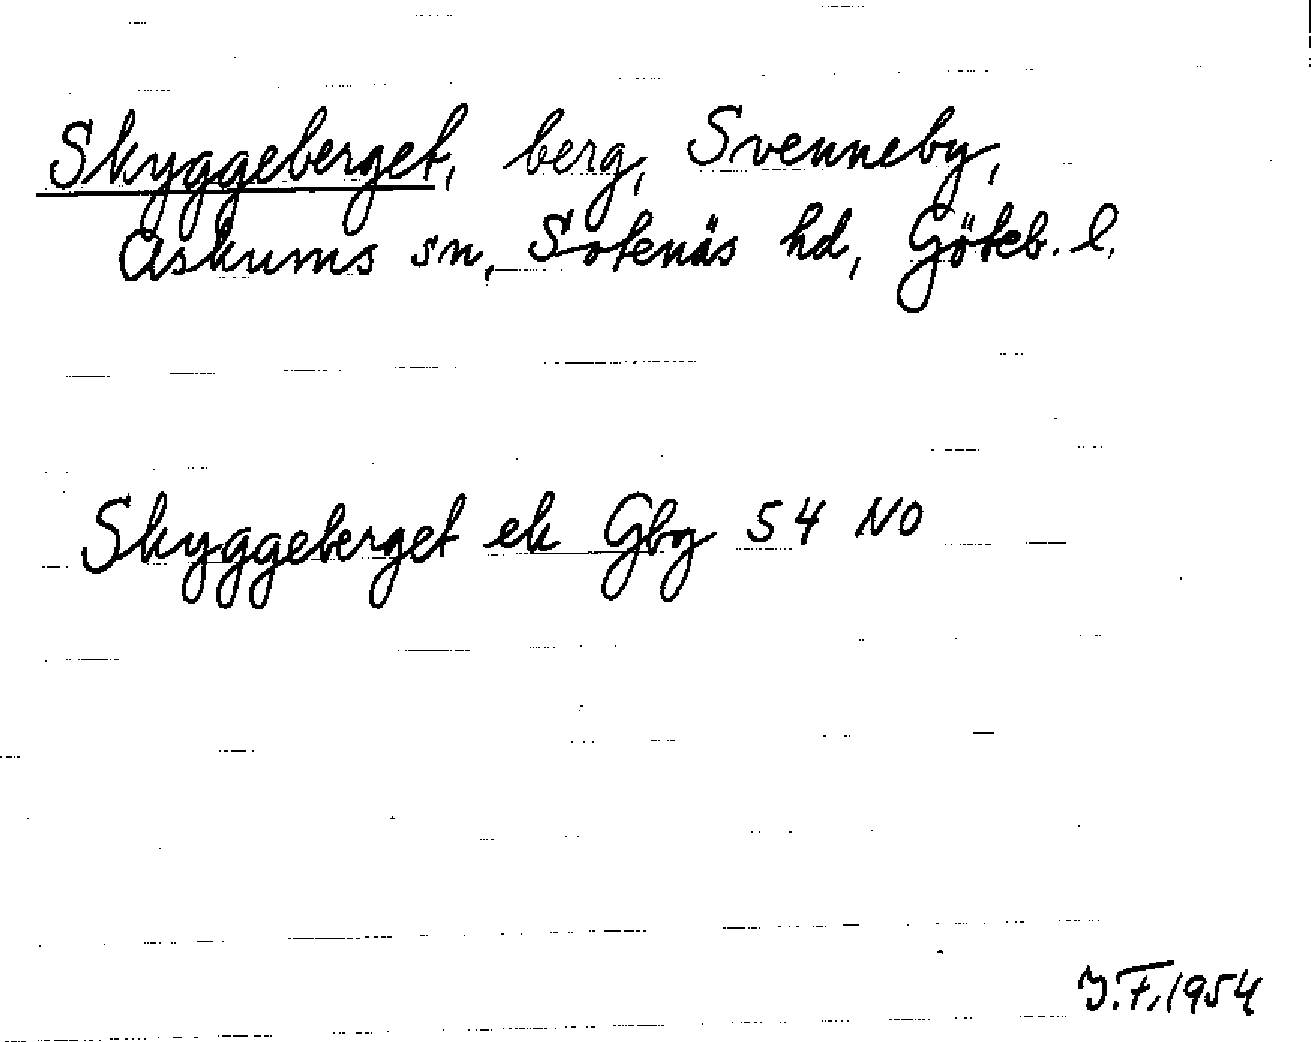 Skyggeberget, berg, Svenneby,
Askums sn, Sotenäs hd, Göteb. l.
Skyggeberget ek Gbg 54 NO
J.F. 1954